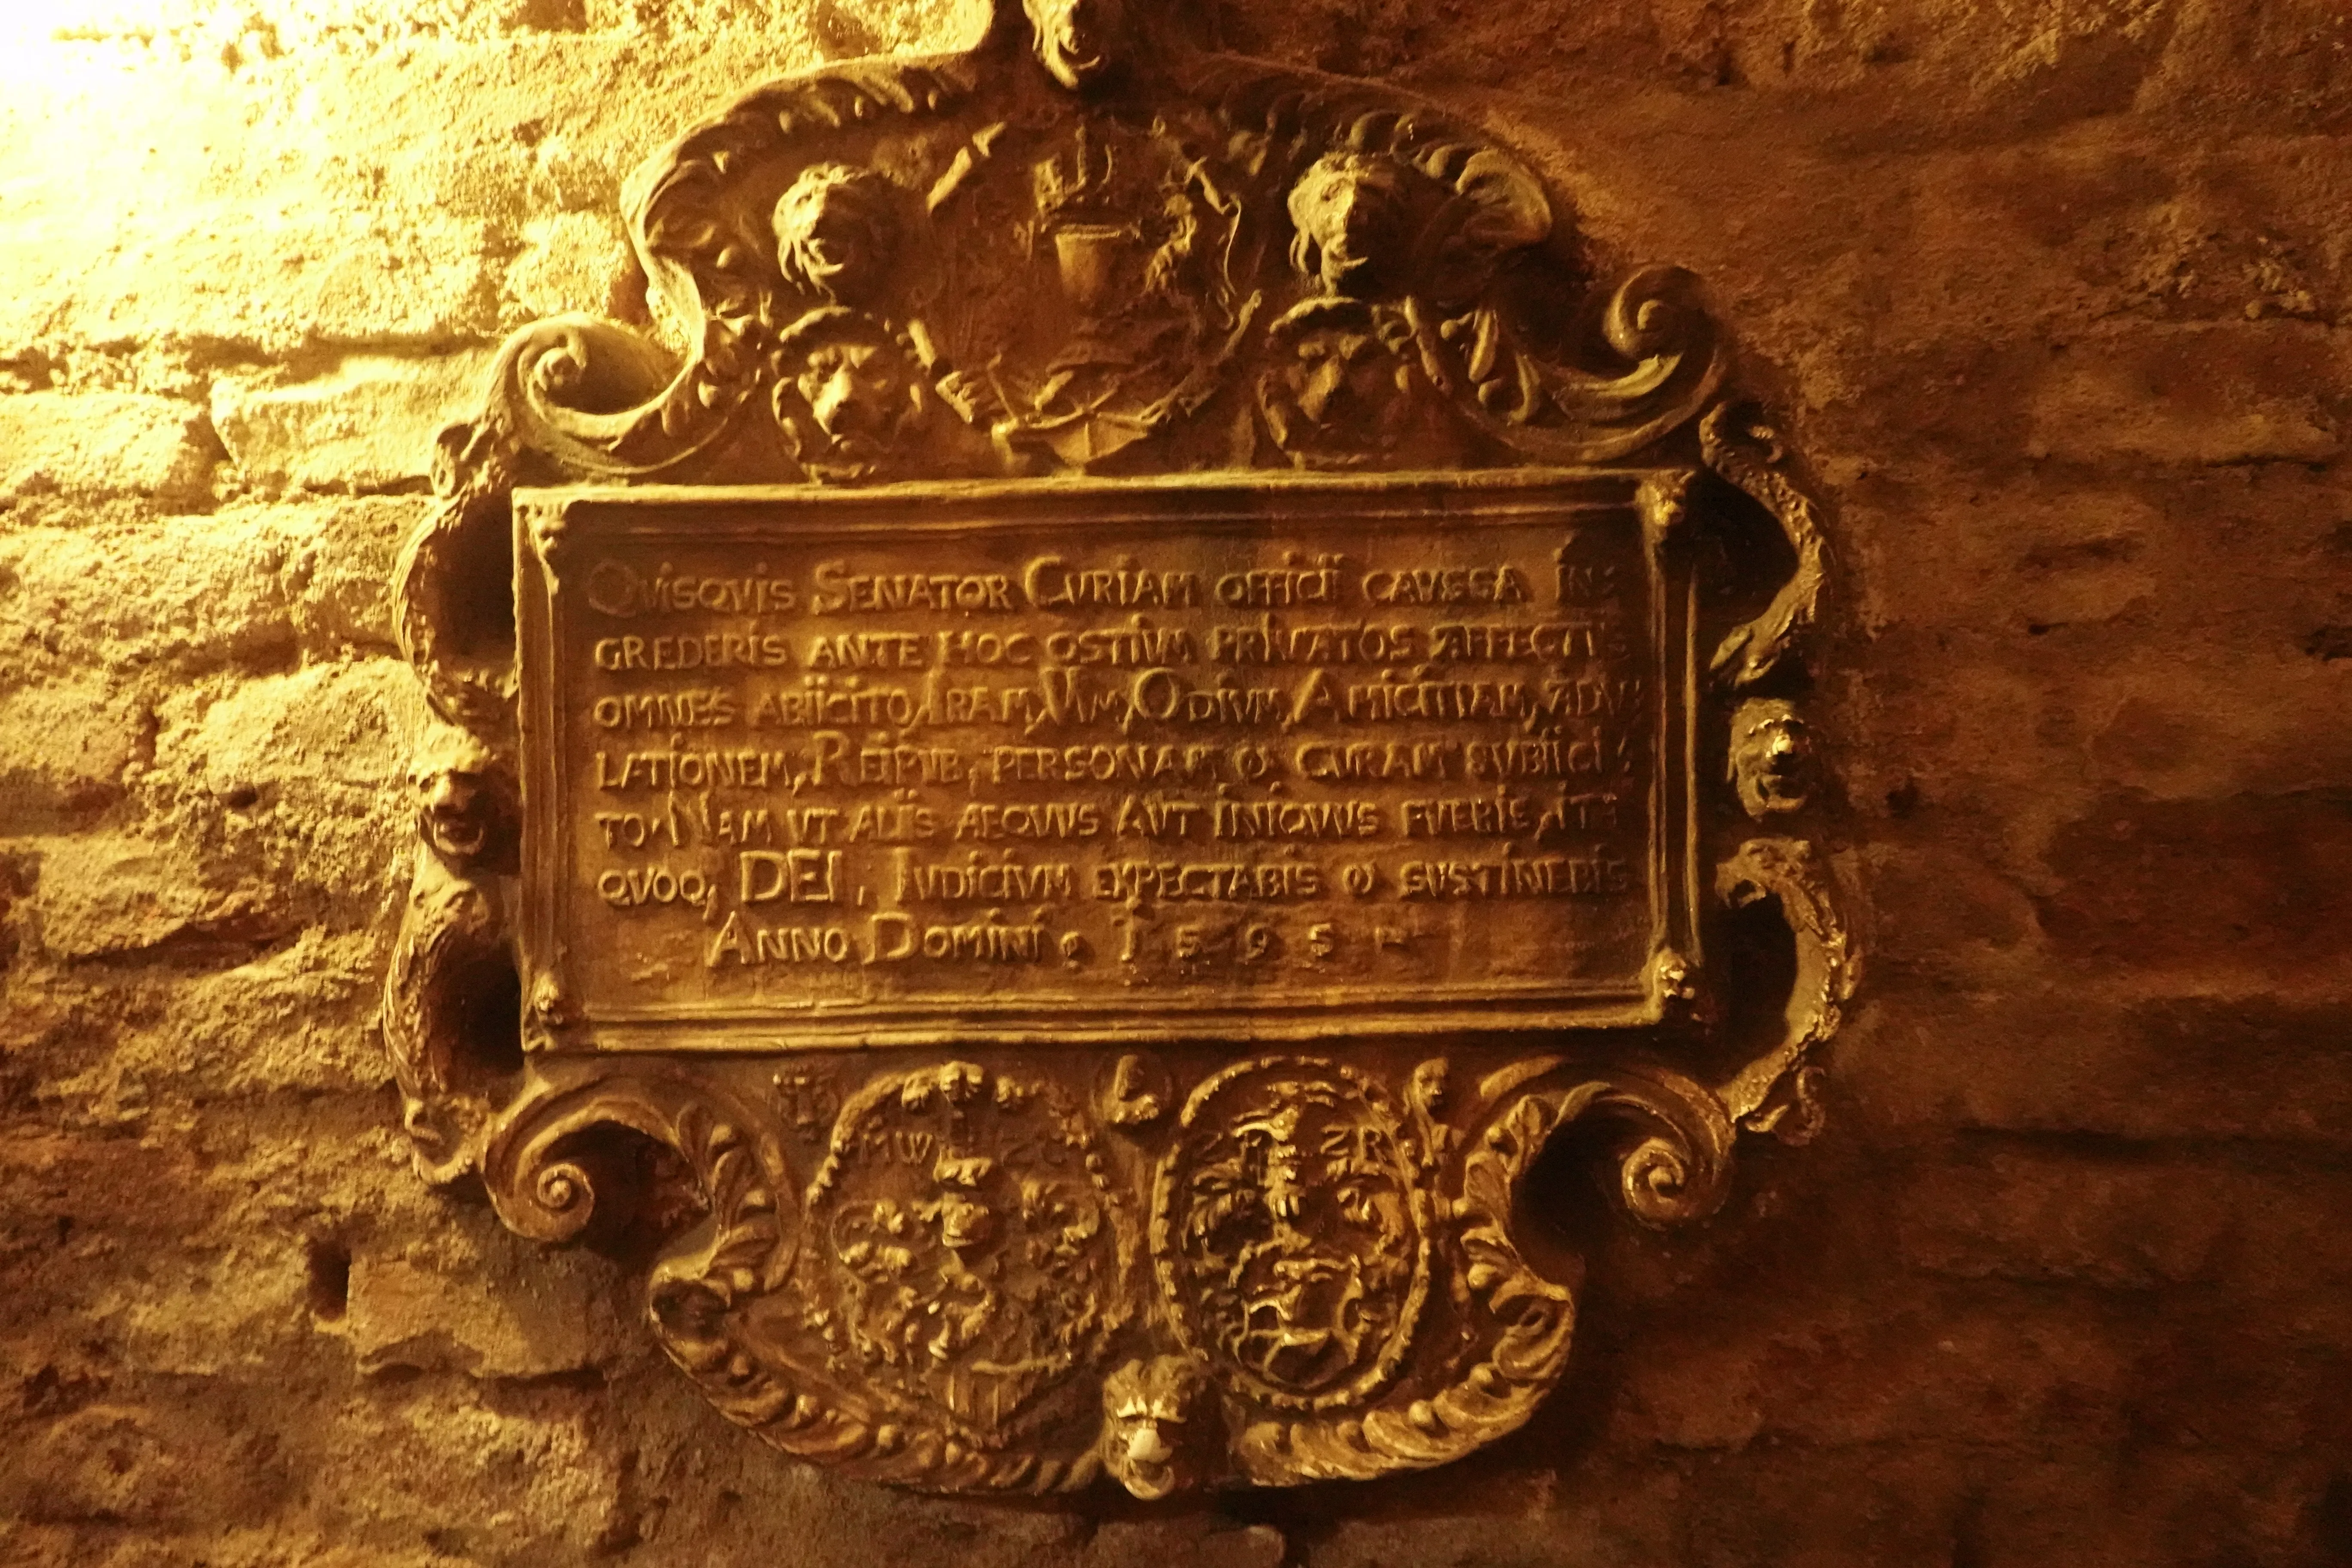 QVISQVIS SENATOR CVRIAM OFFICII CAVSSA IN=
GREDERIS ANTE HOC OSTIVM PRIVATOS AFFECTVS
OMNES ABIICITO, IRAM, VIM, ODIVM, AMICITIAM, ADV
LATIONEM, REIPVB, PERSONAM & CVRAM SVBIICI=
TO. NAM VT ALIIS AEQVVS AVT INIQVVS FVERIS, ITA
QVOQ, DEI. IVDICIVM EXPECTABIS & SVSTINEBIS
ANNO DOMINI. 1595
MW ZR